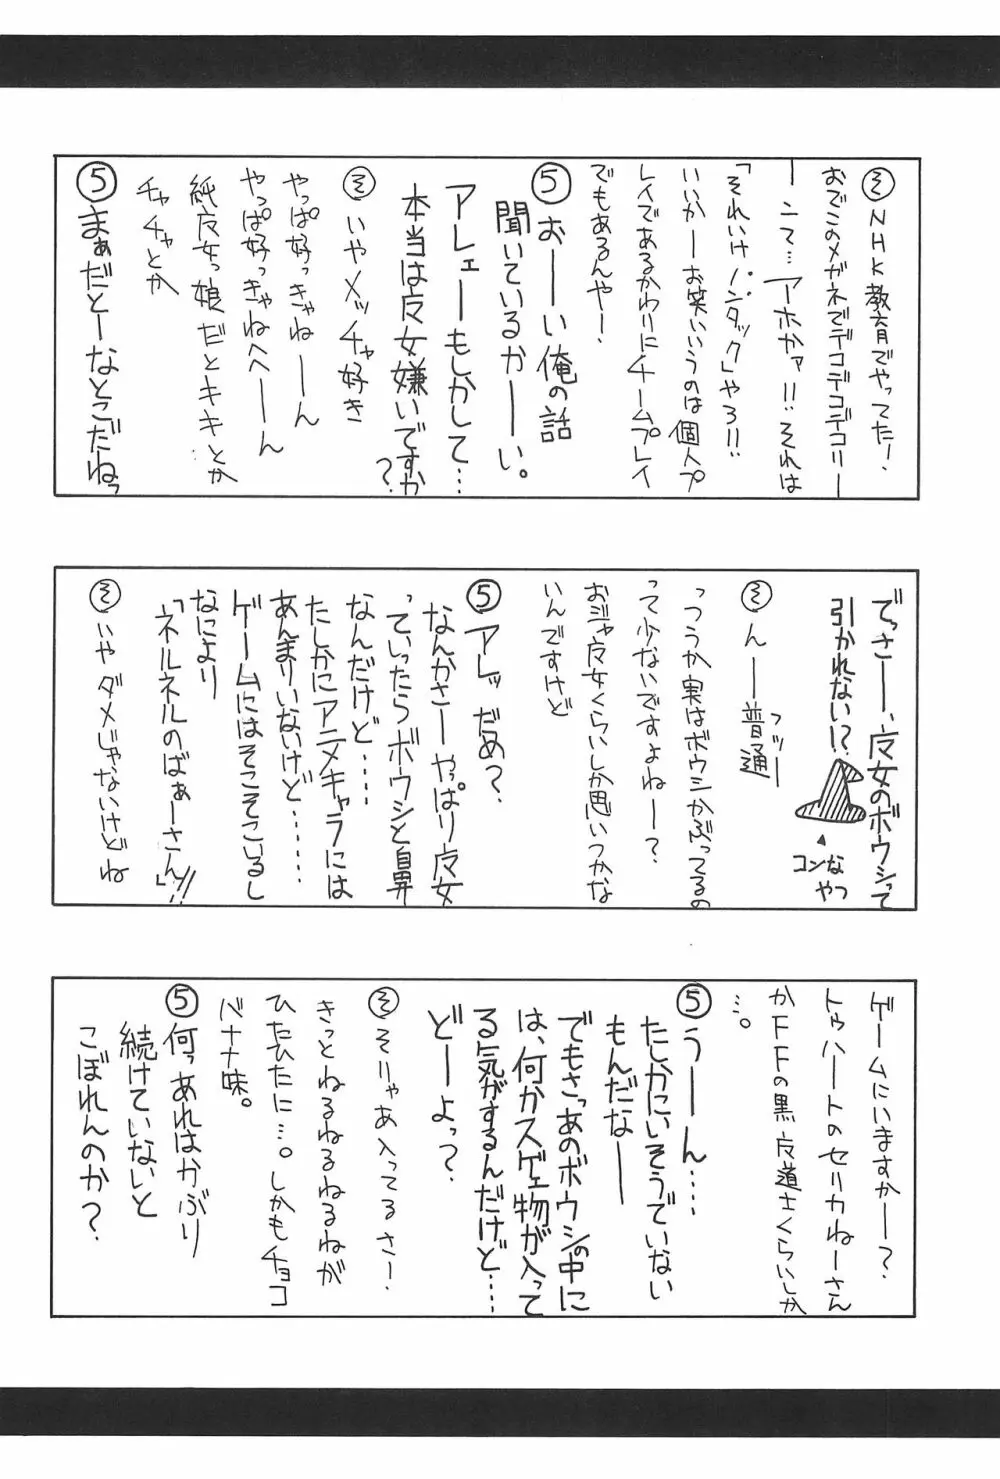 そ NHK教育でやってたー!
おでこのメガネでデコデコデコリー
ーンて…アホかァ!!それは
「それいけパンダック」やろ!!
いいかーお笑いいうのは個人プ
レイであるかわりにチームプレイ
でもあるんやー!
5 おーーい俺の話
聞いているかーーい。
アレェーーもしかして…
本当は広女嫌いですか?
そ いやメッチャ好き
やっぱ好っきゃねーーん
やっぱ好っきゃねへーーん
純広女っ娘だとキキとか
チャチャとか
5 まぁだとーなとこだねっ
でっさーー、広女のボウシって
引かれない!?
コンな
やつ
そ んーー普通
フツー
っつうか実はボウシかぶってるの
って少ないですよねー?
おジャ広女くらいしか思いつかな
いんですけど
5 アレッだめ?
なんかさーやっぱり広女
っていったらボウシと鼻
なんだけど……
たしかにアニメキャラには
あんまりいないけど……
ゲームにはそこそこいるし
なにより
「ネルネルのばぁーさん」!!
そ いやダメじゃないけどね
ゲームにいますかーー?
トゥハートのセリカねーさん
かFFの黒広道士くらいしか
…。
5 うーーん……
たしかにいそうでいない
もんだなーー
でもさっあのボウシの中に
は、何かスゲェ物が入って
る気がするんだけど……
どーよっ?
そ そりゃあ入ってるさー!
きっとねるねるねるねが
ひたひたに…。しかもチョコ
バナナ味。
5 何っあれはかぶり
続けていないと
こぼれんのか?